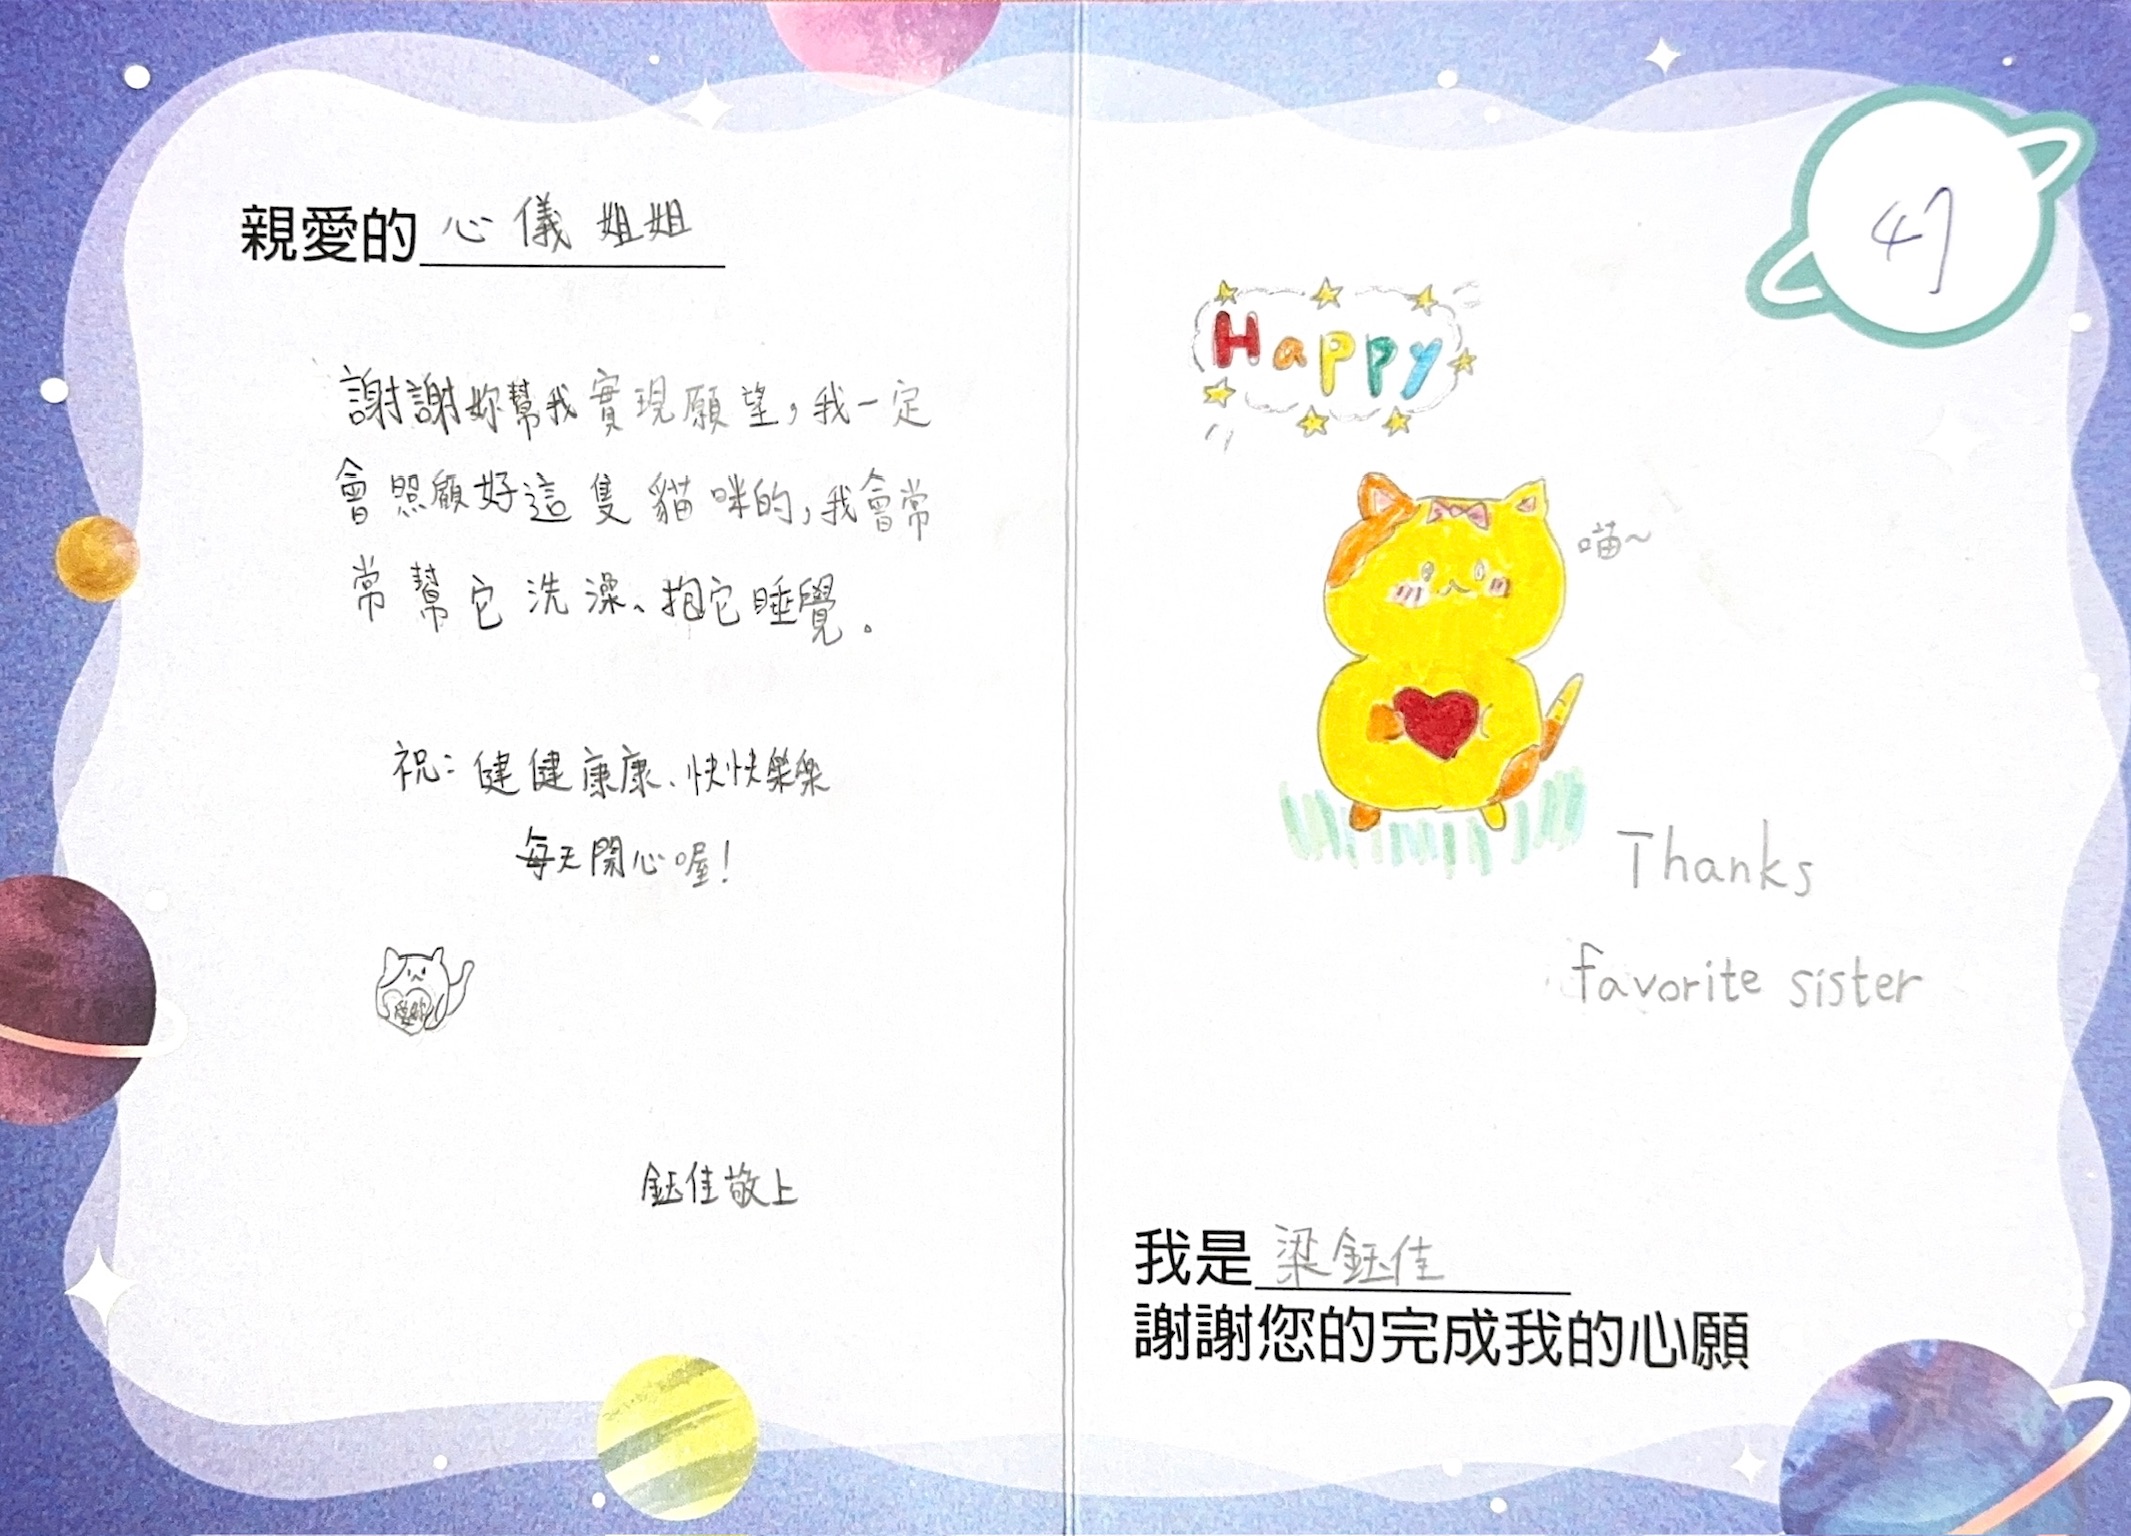 親愛的 心儀姐姐
謝謝妳幫我實現願望，我一定
會照顧好這隻貓咪的，我會常
常幫它洗澡、抱它睡覺。
祝：健健康康、快快樂樂
每天開心喔！
愛妳
鈺佳敬上
47
Happy
喵~
Thanks
favorite sister
我是 梁鈺佳
謝謝您的完成我的心願